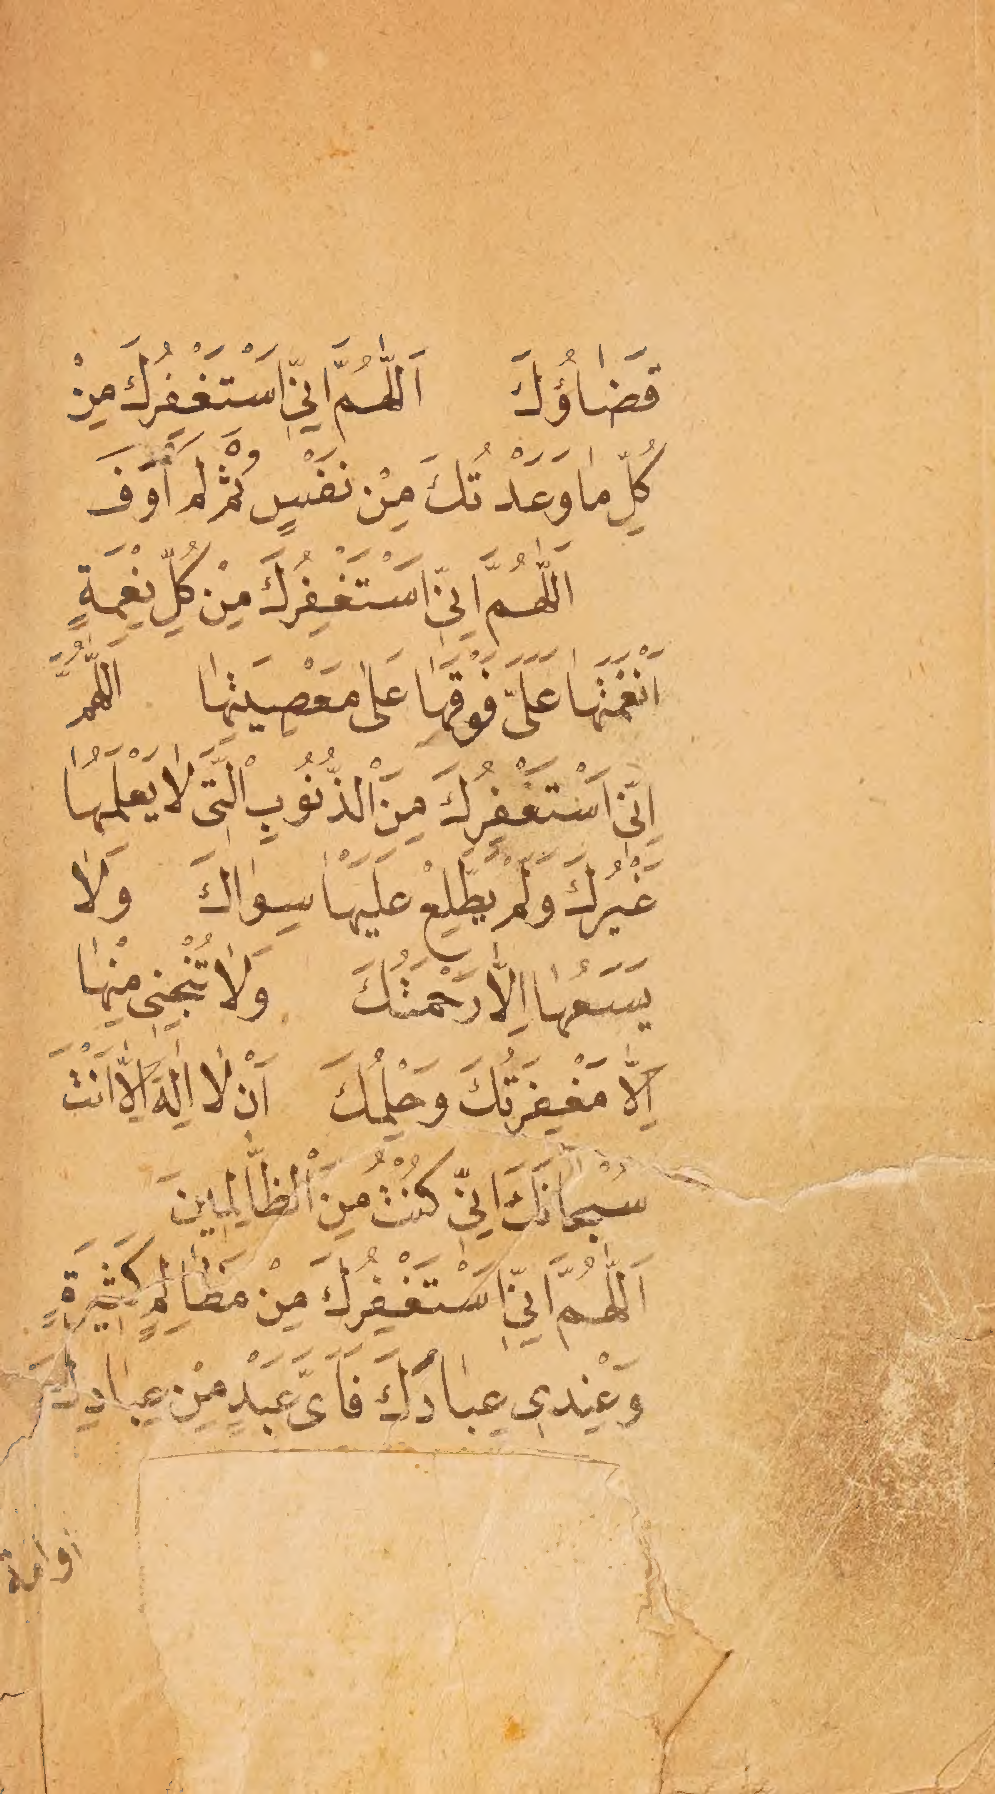 قَضَاؤُكَ اَللّٰهُمَّ اِنّىِ اَسْتَغْفِرُكَ مِنْ
كُلِّ مَا وَعَدْتُكَ مِنْ نَفْسِى ثُمَّ لَمْ اَوْفَ
اَللّٰهُمَّ اِنّىِ اَسْتَغْفِرُكَ مِنْ كُلِّ نِعْمَةٍ
اَنْعَمْتَهَا عَلَىَّ فَوْقَهَا عَلَى مَعْصِيَتِهَا اَللّٰهُمَّ
اِنّىِ اَسْتَغْفِرُكَ مِنَ الْذُّنُوُبِ الْتَّى لَا يَعْلَمُهَا
غَيْرُكَ وَلَمْ يَطَّلِعْ عَلَيْهَا سِوَاكَ وَلَا
يَسَعُهَا اِلَّا رَحْمَتُكَ وَلَا تُنْجِنِى مِنْهَا
اِلَّا مَغْفِرَتُكَ وَحِلْمُكَ اَنْ لَا اِلٰهَ اِلَّا اَنْتَ
سُبْحَانَكَ اِنّىِ كُنْتُ مِنَ الْظَّالِمِينَ
اَللّٰهُمَّ اِنّىِ اَسْتَغْفِرُكَ مِنْ مَظَالِمٍ كَثِيَرةٍ
وَعِنْدِى عِبَادَكَ فَاَىَّ عَبْدٍ مِنْ عِبَادِكَ
أو أمة